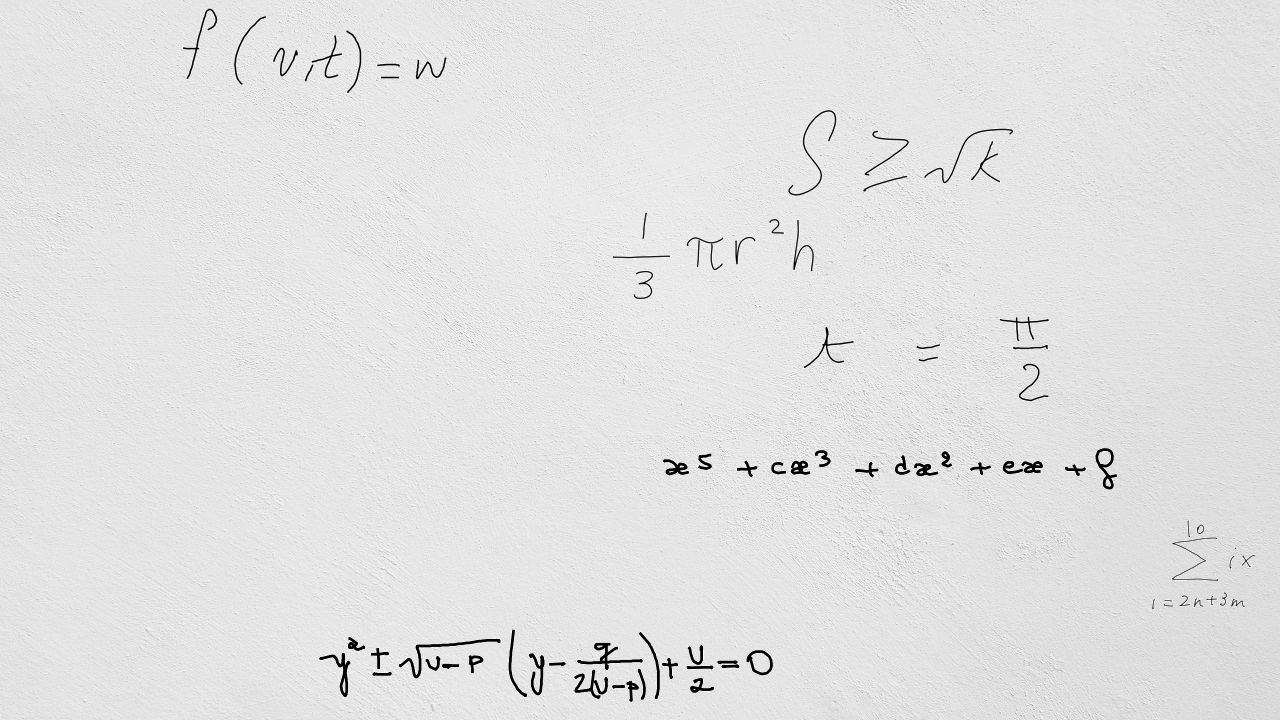 f(v,t)=w
S ≥ √k
1/3 πr²h
t = π/2
x⁵ + cx³ + dx² + ex + f
∑_{i=2n+3m}^{10} ix
y² ± √(U-p) (y - q/(2(U-p))) + U/2 = 0